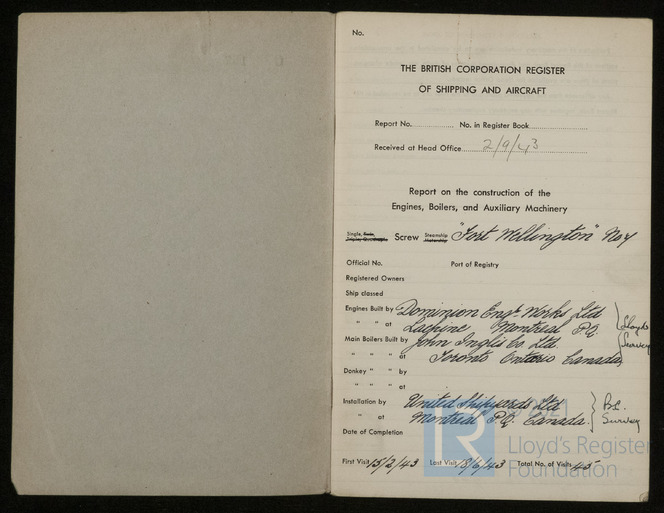 No.
THE BRITISH CORPORATION REGISTER
OF SHIPPING AND AIRCRAFT
Report No. No. in Register Book
Received at Head Office 2/9/43
Report on the construction of the
Engines, Boilers, and Auxiliary Machinery
Single, Twin, Triple, Quadruple Screw Steamship Motorship "Fort Wellington" No 4
Official No. Port of Registry
Registered Owners
Ship classed
Engines Built by Dominion Engr. Works Ltd
" " at Lachine Montreal P.Q. Lloyds
Main Boilers Built by John Inglis Co Ltd. Survey
" " " at Toronto Ontario Canada
Donkey " " by
" " at
Installation by United Shipyards Ltd B.C.
" at Montreal P.Q. Canada. Survey
Date of Completion
First Visit 15/2/43 Last Visit 18/6/43 Total No. of Visits 45
LR
Lloyd's Register
Foundation